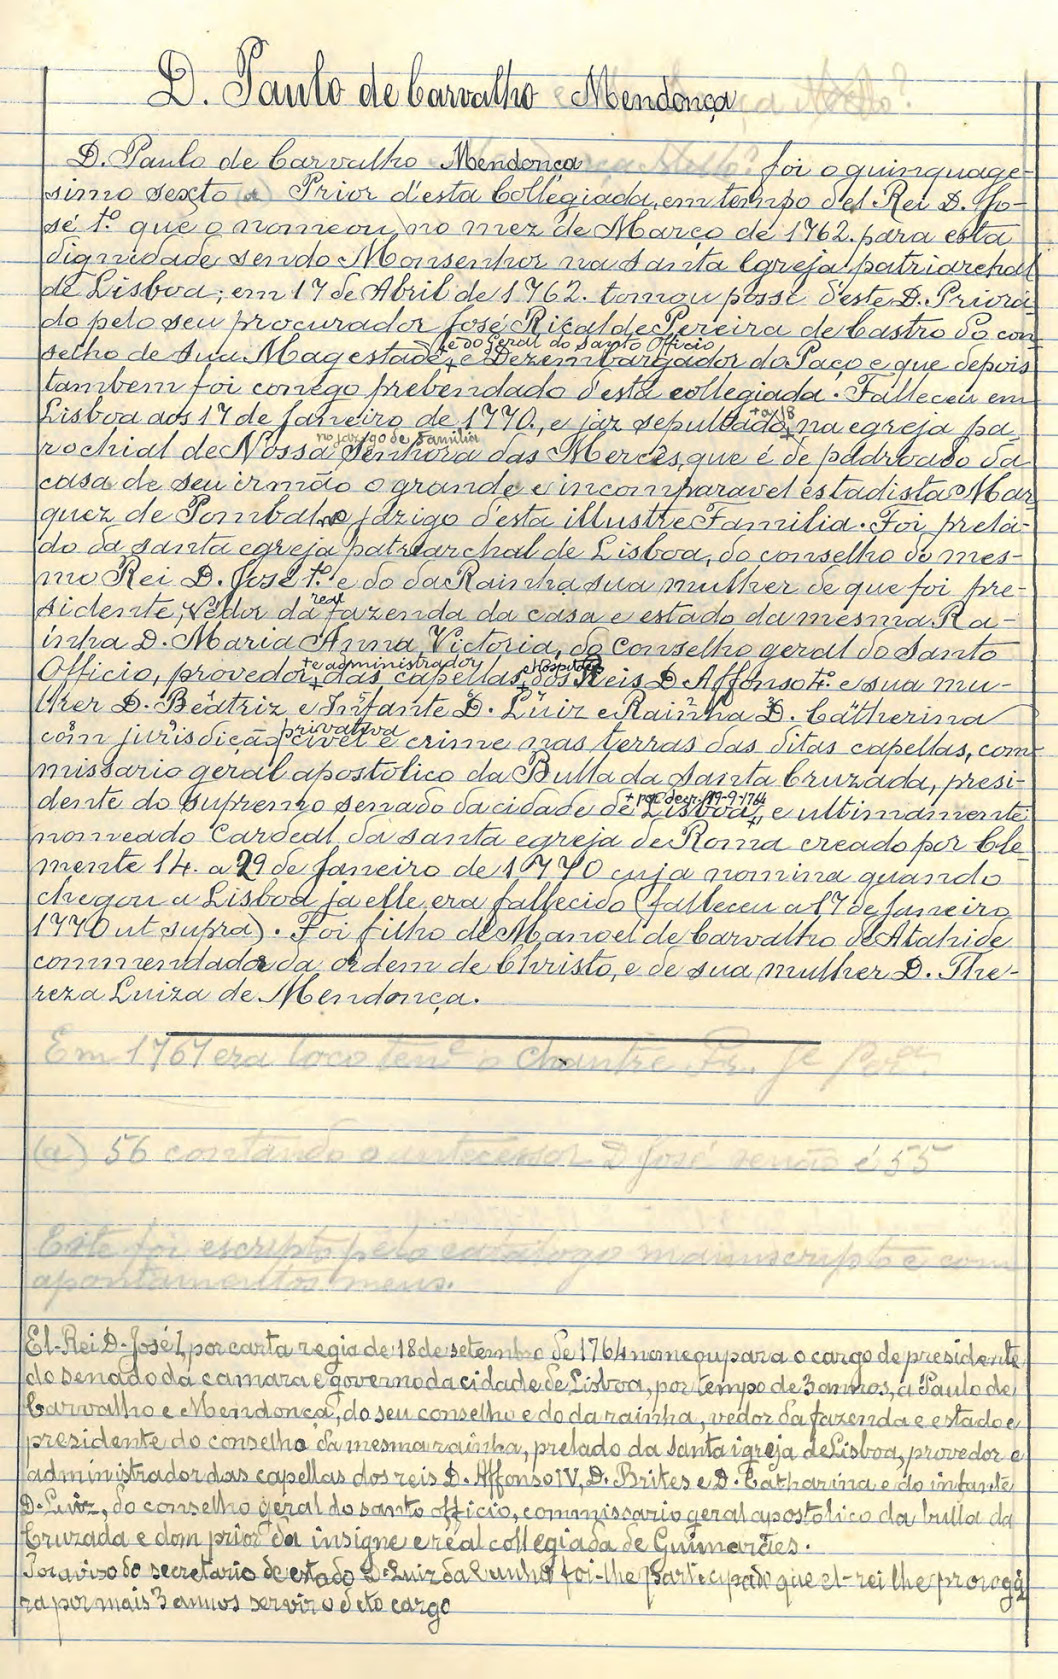 D. Paulo de Carvalho Mendonça
D. Paulo de Carvalho Mendonça foi o quinquage-
simo sexto (a) Prior d'esta Collegiada, em tempo d'el Rei D. Jo-
sé 1º. que o nomeou, no mez de Março de 1762. para esta
dignidade sendo Monsenhor na Santa Egreja patriarchal
de Lisboa; em 17 de Abril de 1762. tomou posse d'este D. Priora-
do pelo seu procurador José Ricalde Pereira de Castro do con-
+ e do Geral do Santo Officio
selho de Sua Magestade, + e Dezembargador do Paço e que depois
tambem foi conego prebendado d'esta collegiada. Falleceu em
Lisboa aos 17 de Janeiro de 1770., e jaz sepultado, + na egreja pa-
+ a 18
no jazigo de familia
rochial de Nossa Senhora das Mercês, que é de padroado da
casa de seu irmão o grande e incomparavel estadista Mar-
quez de Pombal no jazigo d'esta illustre Familia. Foi prela-
do da santa egreja patriarchal de Lisboa, do conselho do mes-
mo Rei D. José 1º. e do da Rainha sua mulher de que foi pre-
sidente, Védor da real fazenda da casa e estado da mesma Ra-
inha D. Maria Anna Victoria, do Conselho geral do Santo
+ e administrador
Officio, provedor + das capellas, dos Reis D. Affonso 4º. e sua mu-
lher D. Beatriz e Infante D. Luiz e Rainha D. Catherina
privativa
com jurisdição civel e crime nas terras das ditas capellas, com-
missario geral apostolico da Bulla da Santa Cruzada, presi-
+ por decr. 19-9-1764
dente do supremo senado da cidade de Lisboa +, e ultimamente
nomeado Cardeal da santa egreja de Roma creado por Cle-
mente 14. a 29 de Janeiro de 1770 cuja nomina quando
chegou a Lisboa ja elle era fallecido (falleceu a 17 de Janeiro
1770 ut supra). Foi filho de Manoel de Carvalho de Atahide
commendador da ordem de Christo, e de sua mulher D. The-
reza Luiza de Mendonça.
Em 1767 era loco tenᵉ o Chantre Fr. Jᵉ Perᵃ.
(a) 56 contando o antecessor D José senão é 55
Este foi escripto pelo catalogo manuscripto e com
apontamentos meus.
El-Rei D. José I, por carta regia de 18 de setembro de 1764 nomeou para o cargo de presidente
do senado da camara e governo da cidade de Lisboa, por tempo de 3 annos, a Paulo de
Carvalho e Mendonça, do seu conselho e do da rainha, vedor da fazenda e estado e
presidente do conselho da mesma rainha, prelado da santa igreja de Lisboa, provedor e
administrador das capellas dos reis D. Affonso IV, D. Brites e D. Catharina e do infante
D. Luiz, do conselho geral do santo officio, commissario geral apostolico da bulla da
Cruzada e dom prior da insigne e real collegiada de Guimarães.
Por aviso do secretario de estado D. Luiz da Cunha foi-lhe participado que el-rei lhe proroga-
ra por mais 3 annos servir o dito cargo